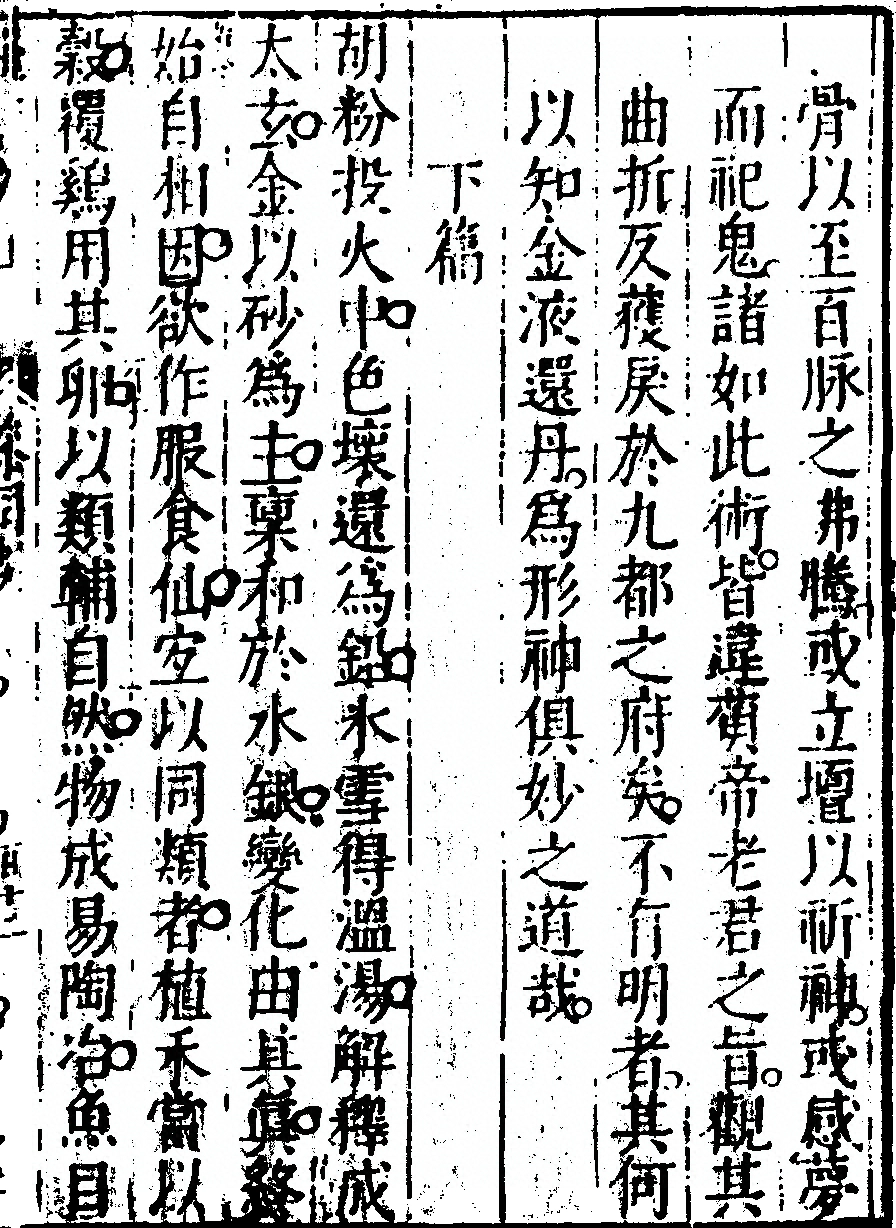 骨以至百脉之弗騰或立壇以祈神或感夢
而祀鬼諸如此術皆違黃帝老君之旨觀其
曲折反獲戾於九都之府矣不有明者其何
以知金液還丹為形神俱妙之道哉
下篇
胡粉投火中色壞還為鉛氷雪得溫湯解釋成
太玄金以砂為主稟和於水銀變化由其眞終
始自相因欲作服食仙宐以同類者植禾當以
穀覆鷄用其卵以類輔自然物成易陶冶魚目